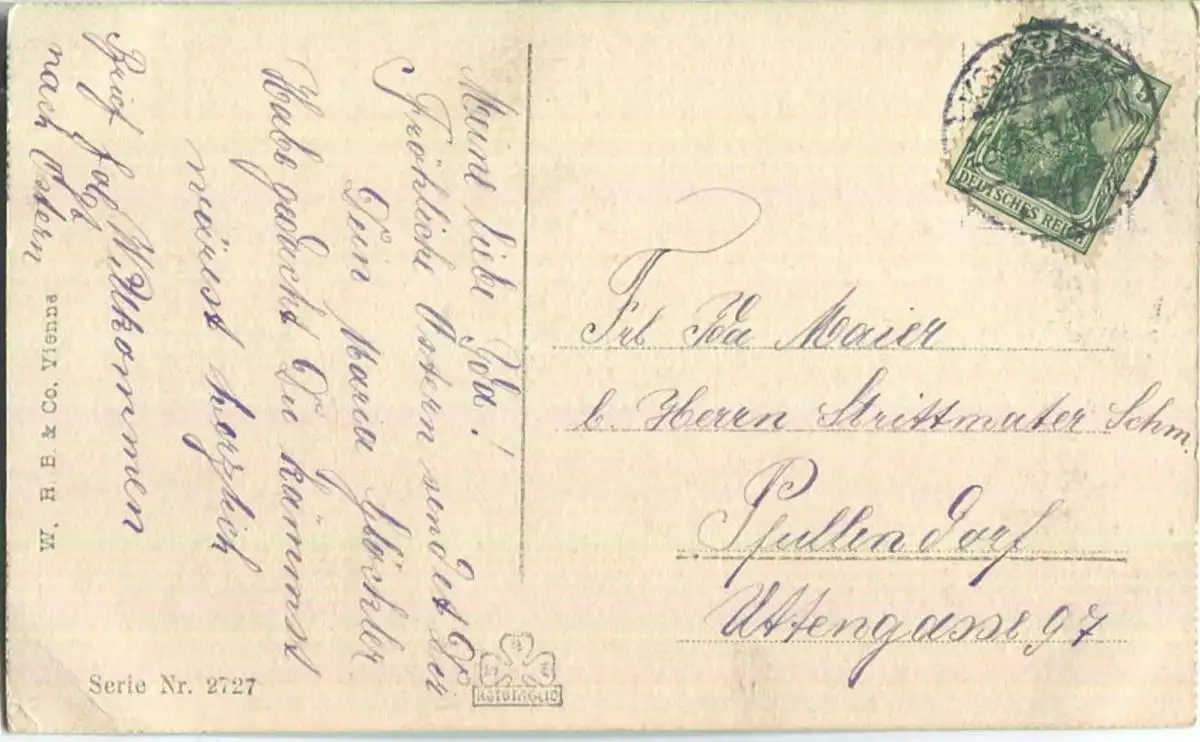 Meine liebe Ida!
Fröhliche Ostern sendet Dir
Dein Maria
Habe gedacht Du kämmst
herzlich
Brief folgt Willkommen
nach Ostern
W. R. B. & Co. Vienna
Serie Nr. 2727
DEUTSCHES REICH
Frl Ida Maier
b. Herrn Strittmater Schm.
Pfullendorf
Uttengasse 97
ROTOTAGLIO